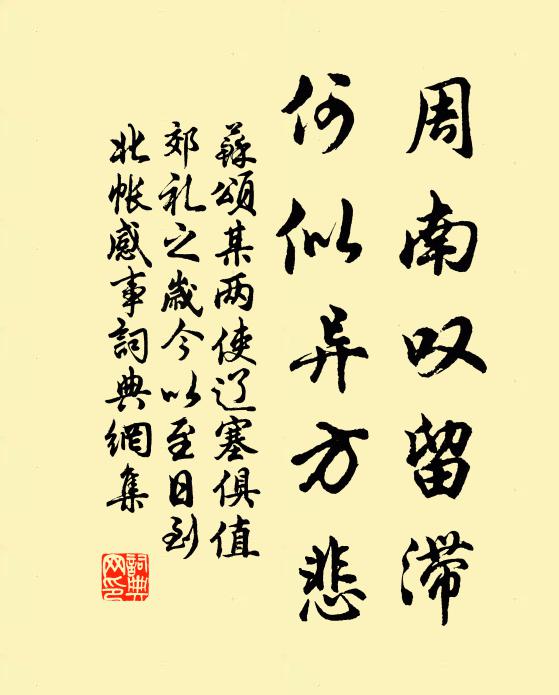 周南叹留滞
何似异方悲
蘇頌某两使辽塞俱值
郊礼之歲今以至日到
北帐感事詞典網集
詞典网印